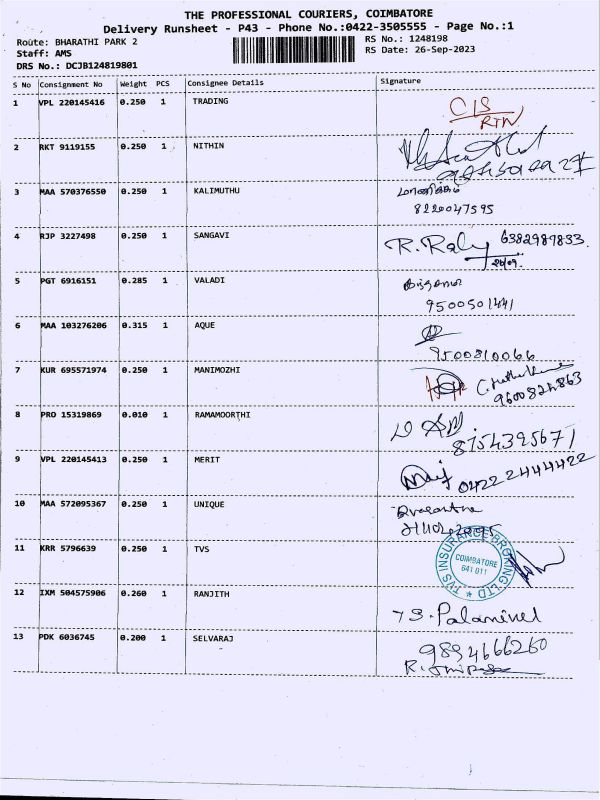 THE PROFESSIONAL COURIERS, COIMBATORE
Delivery Runsheet - P43 - Phone No.:0422-3505555 - Page No.:1
Route: BHARATHI PARK 2
RS No.: 1248198
Staff: AMS
RS Date: 26-Sep-2023
DRS No.: DCJB124819801
S No Consignment No Weight PCS Consignee Details Signature
1 VPL 220145416 0.250 1 TRADING
C/S
RTN
2 RKT 9119155 0.250 1 NITHIN
3 MAA 570376550 0.250 1 KALIMUTHU
8220047595
4 RJP 3227498 0.250 1 SANGAVI
6382987833
26/09
5 PGT 6916151 0.285 1 VALADI
9500501441
6 MAA 103276206 0.315 1 AQUE
9500810066
7 KUR 695571974 0.250 1 MANIMOZHI
9600824863
8 PRO 15319869 0.010 1 RAMAMOORTHI
8754395671
9 VPL 220145413 0.250 1 MERIT
0422 2444422
10 MAA 572095367 0.250 1 UNIQUE
11 KRR 5796639 0.250 1 TVS
TVS INSURANCE BROKING LTD
COIMBATORE
641 011
12 IXM 504575906 0.260 1 RANJITH
13 PDK 6036745 0.200 1 SELVARAJ
9894666260